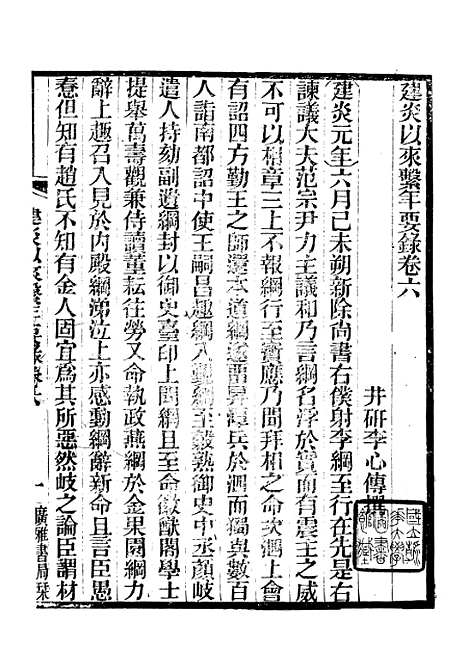 建炎以來繫年要錄卷六
井研李心傳撰
建炎元年六月己未朔新除尚書右僕射李綱至行在先是右
諫議大夫范宗尹力主議和乃言綱名浮於實而有震主之威
不可以相章三上不報綱行至寶應乃聞拜相之命次泗上會
有詔四方勤王之師還本道綱遂留兵於泗而與數百
人詣南都詔中使王嗣昌趣綱入覲綱至穀熟御史中丞顏岐
遣人持劾副遺綱封以御史臺印上聞綱且至命徽猷閣學士
提舉萬壽觀兼侍讀董耘往勞又命執政燕綱於金果園綱力
辭上趣召入見於內殿綱涕泣上亦感動綱辭新命且言臣愚
惷但知有趙氏不知有金人固宜爲其所惡然岐之論臣謂材
建炎以來繫年要錄卷六
一
廣雅書局栞